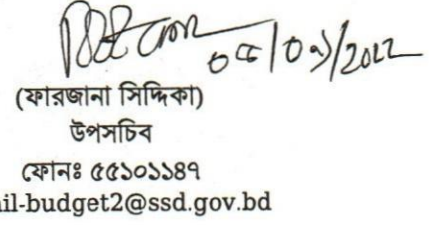 ০৫/০১/2022
(ফারজানা সিদ্দিকা)
উপসচিব
ফোনঃ ৫৫১০১১৪৭
il-budget2@ssd.gov.bd